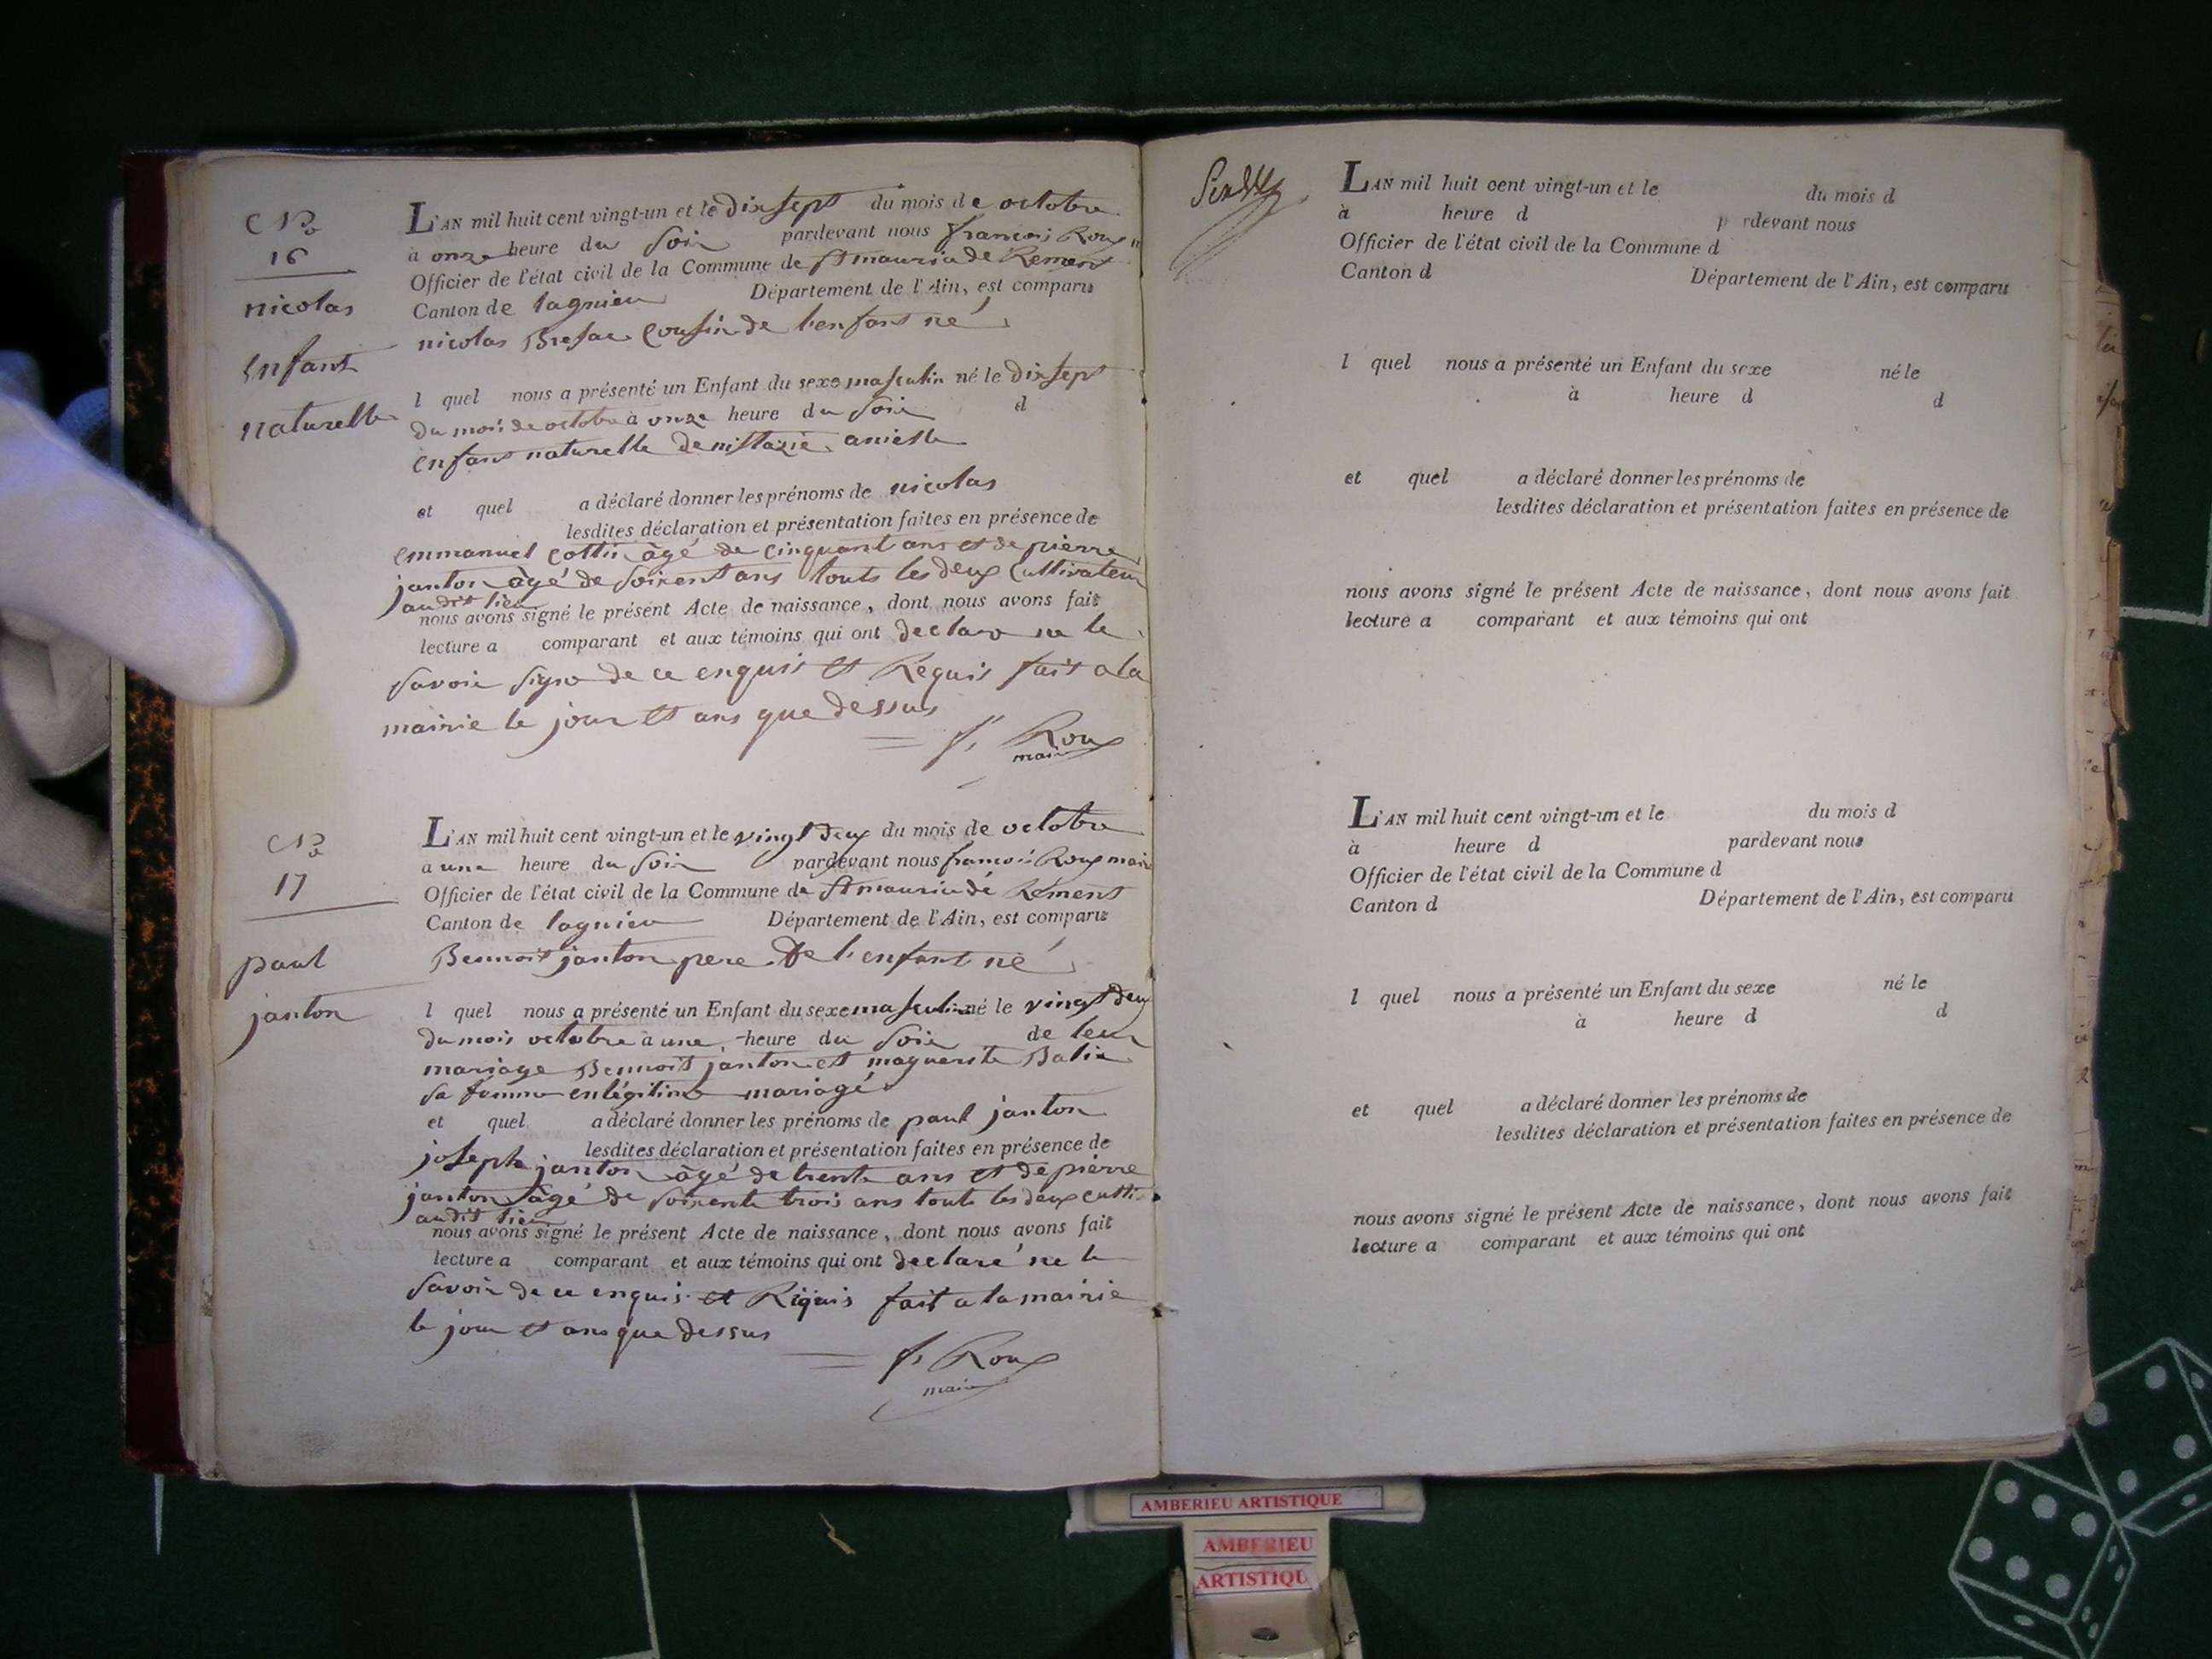 No
16
nicolas
Enfant
naturelle
L'AN mil huit cent vingt-un et le dix sept du mois de octobre
à onze heure du Soir pardevant nous francois Roux
Officier de l'état civil de la Commune de St mauricede Remens
Canton de lagnieu Département de l'Ain, est comparu
nicolas Cousin de l'enfant né
l quel nous a présenté un Enfant du sexe masculin né le dix sept
du mois de octobre à onze heure du Soir d
enfant naturelle de
et quel a déclaré donner les prénoms de nicolas
lesdites déclaration et présentation faites en présence de
emmanuel cottin âgé de cinquant ans et de pierre
janton âgé de soixent ans touts les deux Cultivateur
au dit lieu
nous avons signé le présent Acte de naissance, dont nous avons fait
lecture a comparant et aux témoins qui ont declare ne le
savoir signe de ce enquis et Requis fait a la
mairie le jour et ans que dessus
f. Roux
maire
No
17
paul
janton
L'AN mil huit cent vingt-un et le vingt deux du mois de octobre
a une heure du Soir pardevant nous francois Roux maire
Officier de l'état civil de la Commune de St mauricede Remens
Canton de lagnieu Département de l'Ain, est comparu
Bennoit janton pere De l'enfant né
l quel nous a présenté un Enfant du sexe masculin né le vingt deux
du mois octobre à une heure du Soir de leur
mariage Bennoit janton et maguerite
sa femme en légitime mariagé
et quel a déclaré donner les prénoms de paul janton
lesdites déclaration et présentation faites en présence de
joseph janton âgé de trente ans et de pierre
janton âgé de soixente trois ans touts les deux culti
au dit lieu
nous avons signé le présent Acte de naissance, dont nous avons fait
lecture a comparant et aux témoins qui ont declaré ne le
savoir de ce enquis et Requis fait a la mairie
le jour et ans que dessus
f. Roux
maire
L'AN mil huit cent vingt-un et le du mois d
à heure d p rdevant nous
Officier de l'état civil de la Commune d
Canton d Département de l'Ain, est comparu
l quel nous a présenté un Enfant du sexe né le
à heure d d
et quel a déclaré donner les prénoms de
lesdites déclaration et présentation faites en présence de
nous avons signé le présent Acte de naissance, dont nous avons fait
lecture a comparant et aux témoins qui ont
L'AN mil huit cent vingt-un et le du mois d
à heure d pardevant nous
Officier de l'état civil de la Commune d
Canton d Département de l'Ain, est comparu
l quel nous a présenté un Enfant du sexe né le
à heure d d
et quel a déclaré donner les prénoms de
lesdites déclaration et présentation faites en présence de
nous avons signé le présent Acte de naissance, dont nous avons fait
lecture a comparant et aux témoins qui ont
AMBERIEU ARTISTIQUE
AMBERIEU
ARTISTIQU